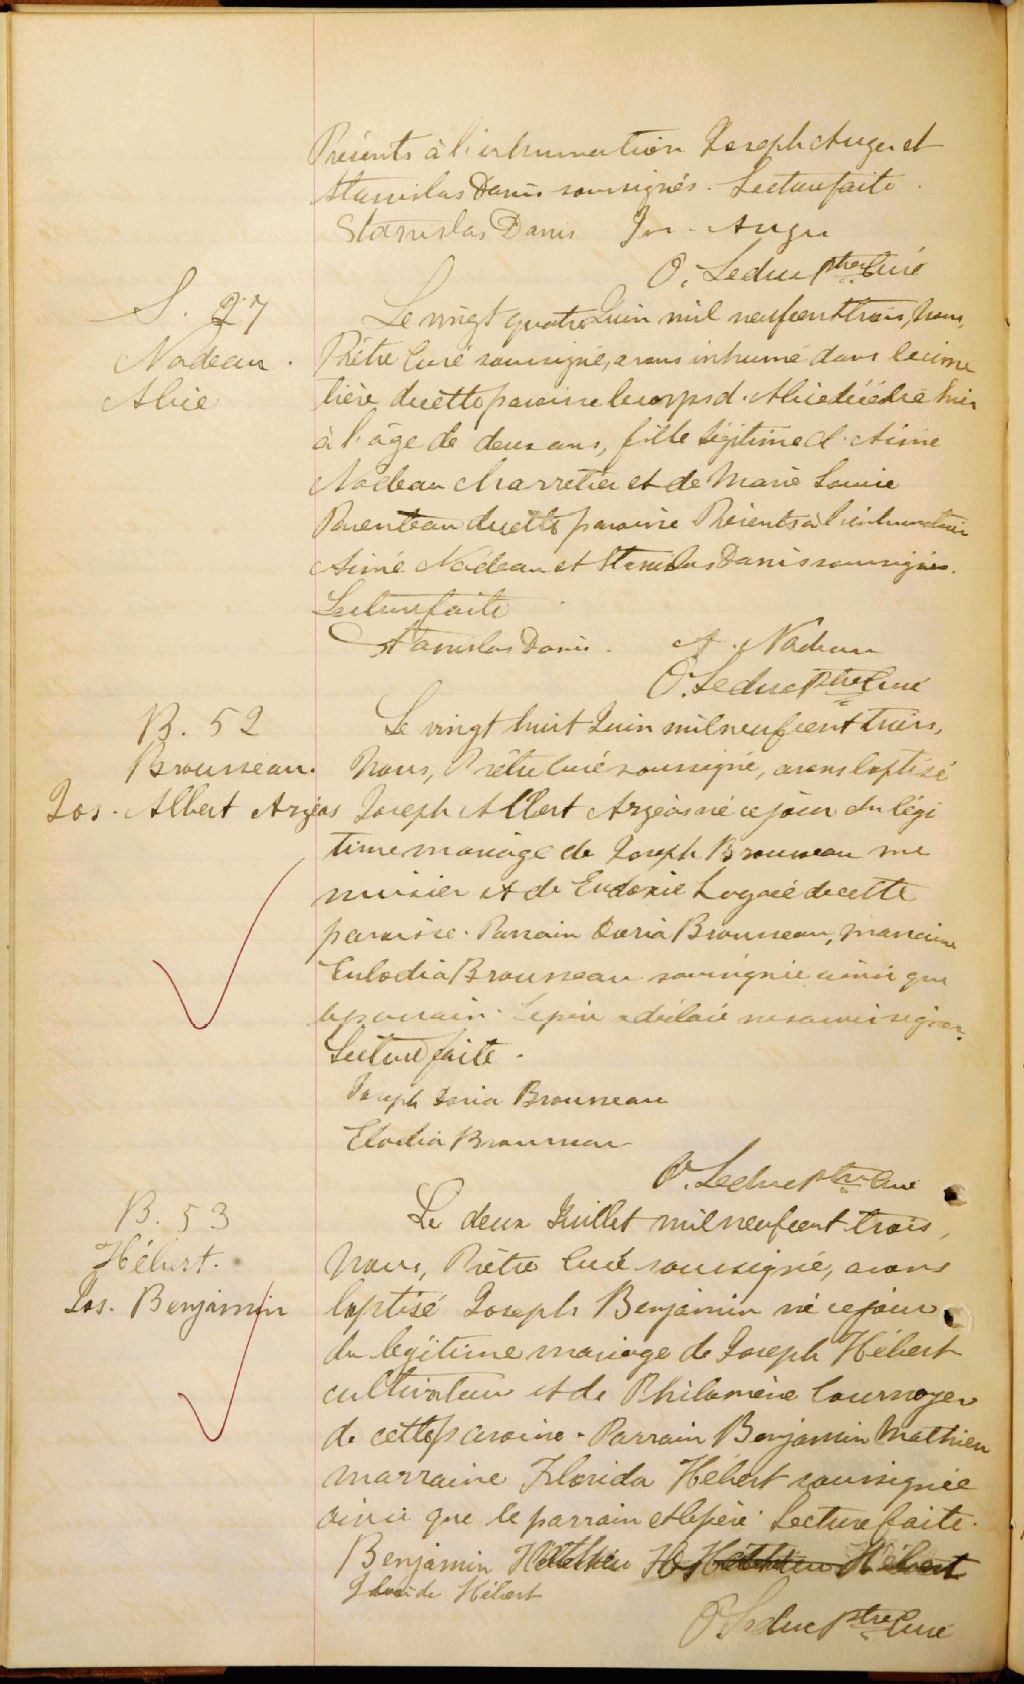 Présents à l'inhumation Joseph Auger et
Stanislas Danis soussignés. Lecture faite.
Stanislas Danis Jos. Auger
O. Leduc Ptre Curé
S. 27
Nadeau.
Alice
Le vingt quatre Juin mil neuf cent trois, Nous,
Prêtre Curé soussigné, avons inhumé dans le cime
tière de cette paroisse le corps d'Alice décédée hier
à l'âge de deux ans, fille légitime d'Aimé
Nadeau charretier et de Marie Louise
Parenteau de cette paroisse Présents à l'inhumation
Aimé Nadeau et Stanislas Danis soussignés.
Lecture faite
Stanislas Danis. A. Nadeau
O. Leduc Ptre Curé
B. 52
Brousseau.
Jos. Albert Argéas
Le vingt huit Juin mil neuf cent trois,
Nous, Prêtre Curé soussigné, avons baptisé
Joseph Albert Argéas né ce jour du légi
time mariage de Joseph Brousseau me
nuisier et de Eudoxie Lagacé de cette
paroisse. Parrain Doria Brousseau, marraine
Eulodia Brousseau soussignée ainsi que
le parrain. Le père a déclaré ne savoir signer.
Lecture faite.
Joseph Doria Brousseau
Elodia Brousseau
O. Leduc Ptre Curé
B. 53
Hébert.
Jos. Benjamin
Le deux Juillet mil neuf cent trois,
Nous, Prêtre Curé soussigné, avons
baptisé Joseph Benjamin né ce jour
du légitime mariage de Joseph Hébert
cultivateur et de Philomène Cournoyer
de cette paroisse. Parrain Benjamin Mathieu
marraine Florida Hébert soussignée
ainsi que le parrain et le père. Lecture faite.
Benjamin Mathieu Hébert
Florida Hébert
O. Leduc Ptre Curé